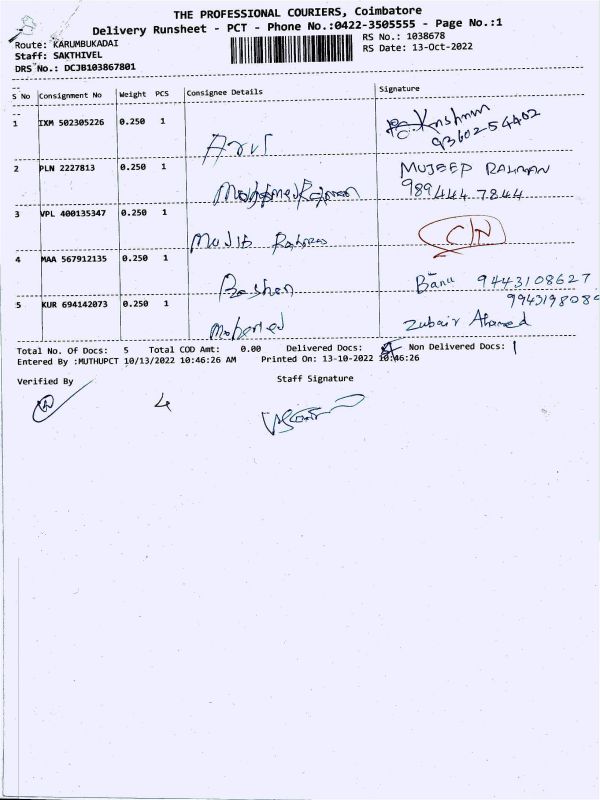 THE PROFESSIONAL COURIERS, Coimbatore
Delivery Runsheet - PCT - Phone No.:0422-3505555 - Page No.:1
Route: KARUMBUKADAI
RS No.: 1038678
Staff: SAKTHIVEL
RS Date: 13-Oct-2022
DRS No.: DCJB103867801
S No Consignment No Weight PCS Consignee Details Signature
1 IXM 502305226 0.250 1 Arul Krishnan
9360254402
2 PLN 2227813 0.250 1 Mohamed Rahman MUJEEP RAHMAN
989 444 7844
3 VPL 400135347 0.250 1 Mujib Rahman C/N
4 MAA 567912135 0.250 1 Banu 9443108627
5 KUR 694142073 0.250 1 Mohamed Zubair Ahamed
Total No. Of Docs: 5 Total COD Amt: 0.00 Delivered Docs: 4 Non Delivered Docs: 1
Entered By :MUTHUPCT 10/13/2022 10:46:26 AM Printed On: 13-10-2022 10:46:26
Verified By Staff Signature
4